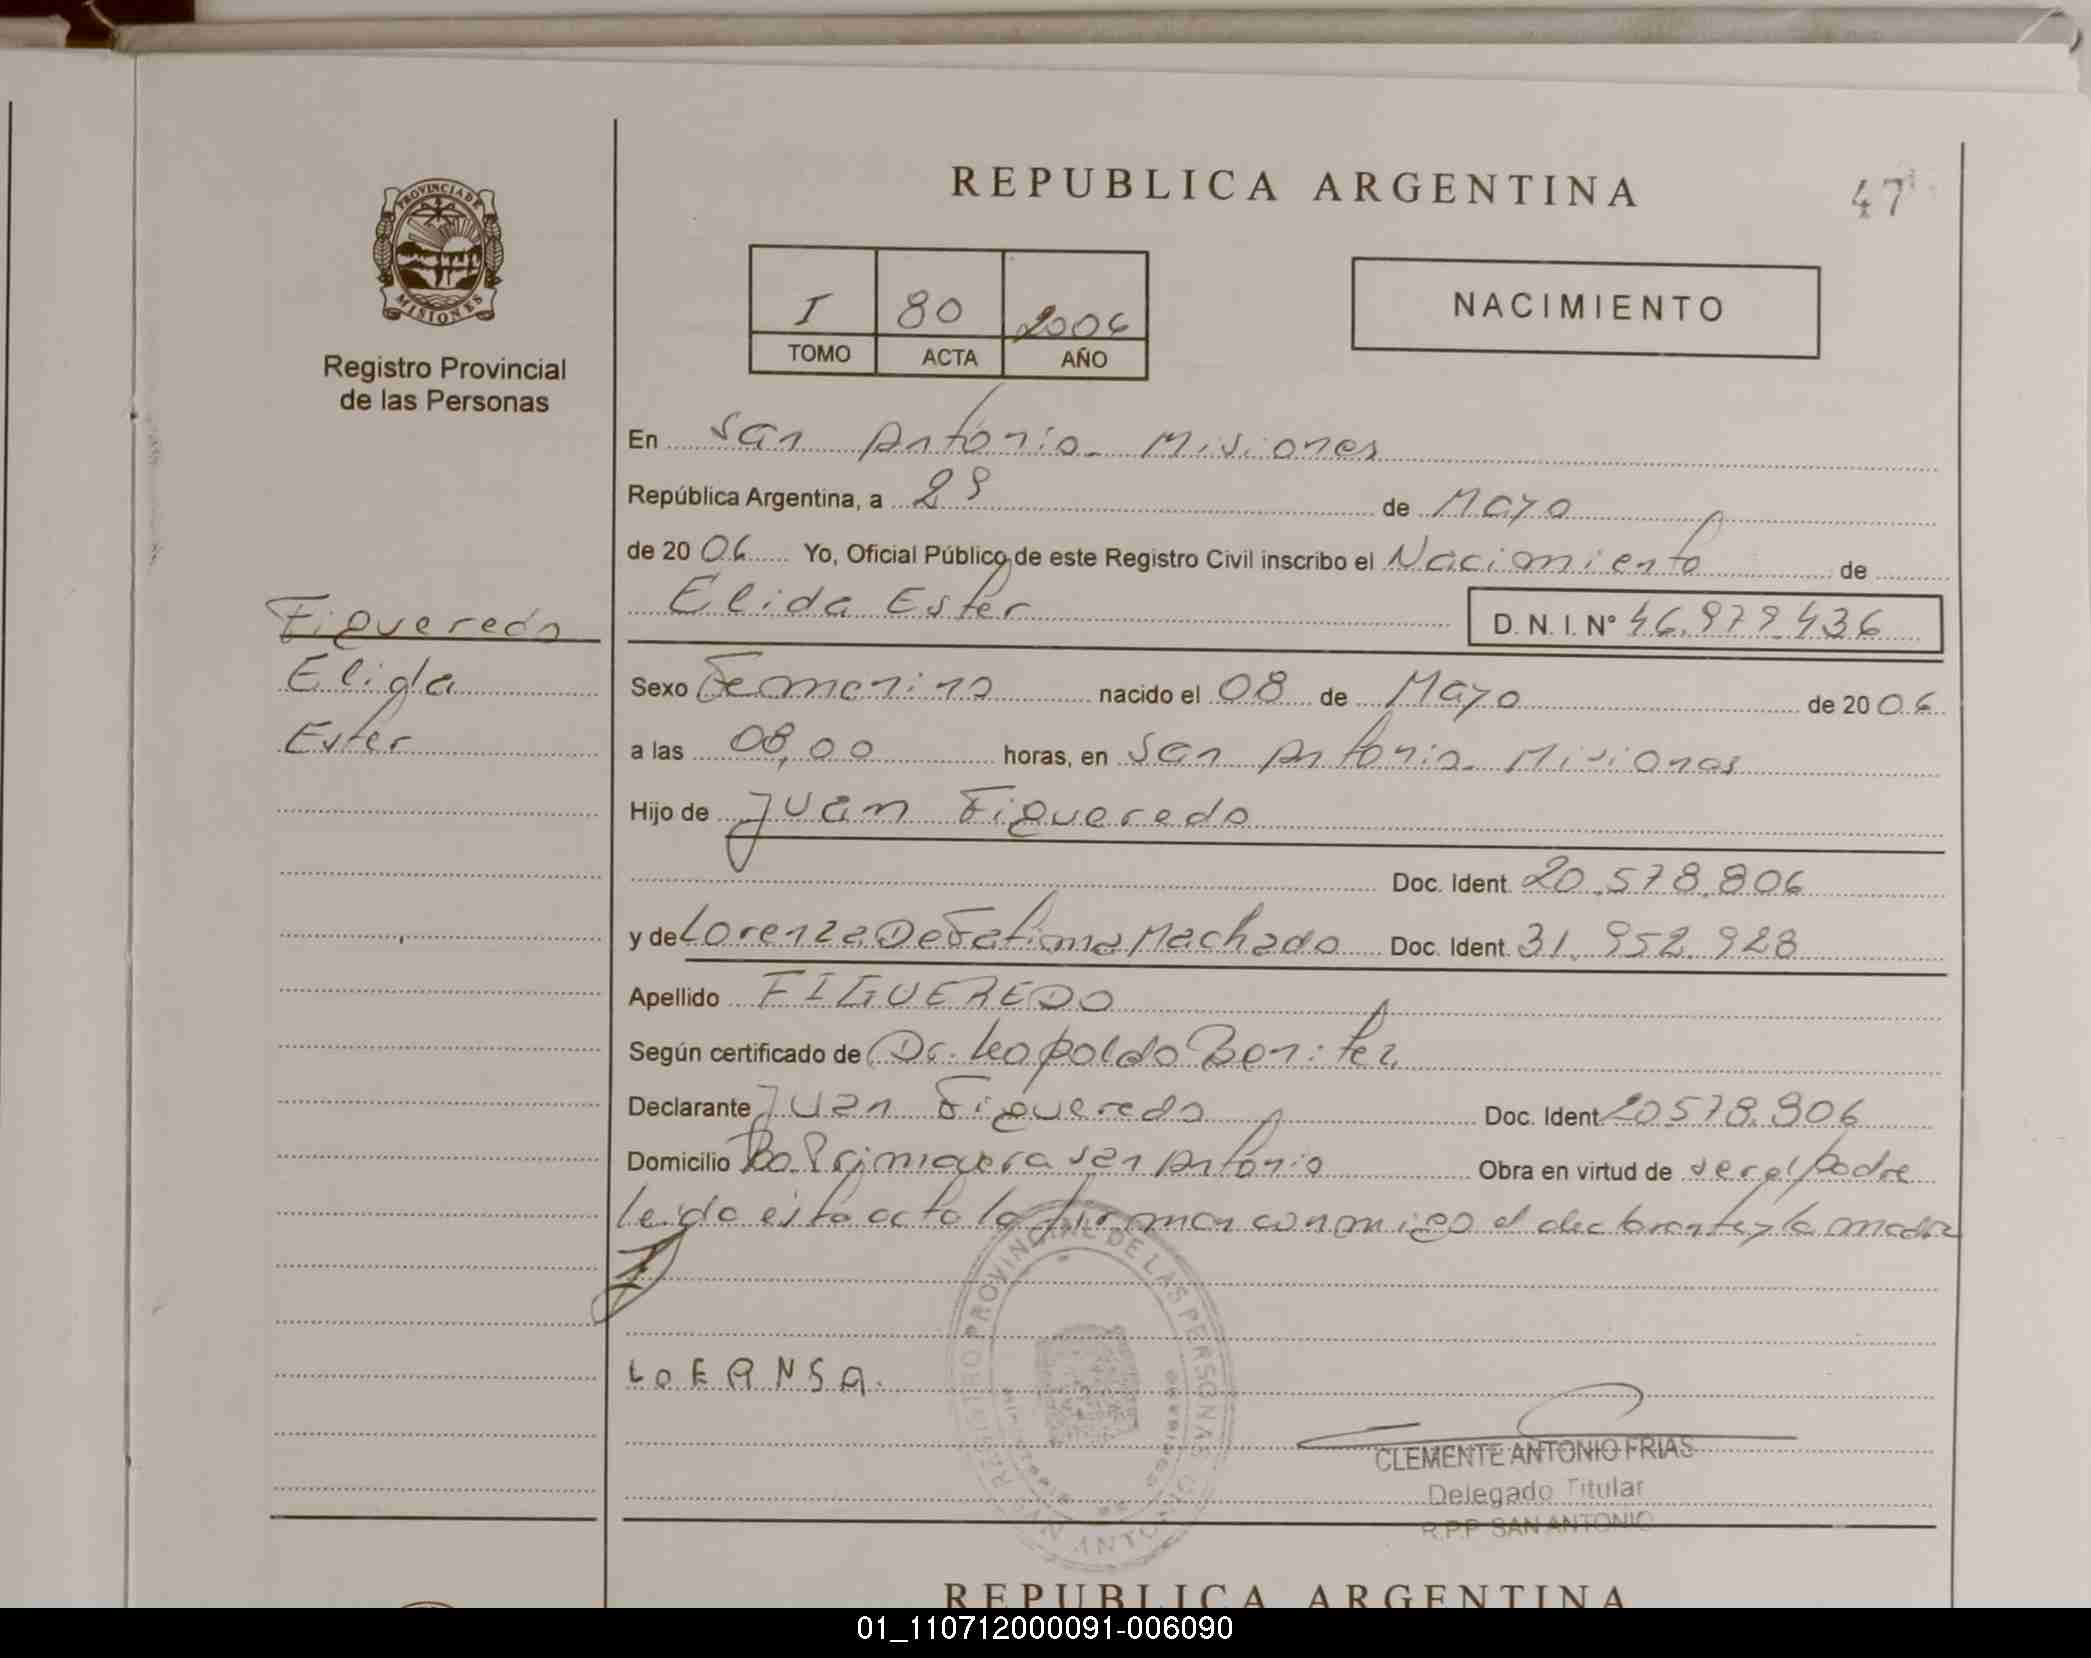 REPUBLICA ARGENTINA
47
PROVINCIA DE
MISIONES
Registro Provincial
de las Personas
I 80 2006
TOMO ACTA AÑO
NACIMIENTO
En San Antonio - Misiones
República Argentina, a 29 de Mayo
de 2006 Yo, Oficial Público de este Registro Civil inscribo el Nacimiento de
Elida Ester D. N. I. N° 46.979.436
Figueredo
Elida
Ester
Sexo Femenino nacido el 08 de Mayo de 2006
a las 08,00 horas, en San Antonio - Misiones
Hijo de Juan Figueredo
Doc. Ident. 20.578.806
y de Lorenza De Fatima Machado Doc. Ident. 31.952.928
Apellido FIGUEREDO
Según certificado de Dr. Leopoldo Benitez
Declarante Juan Figueredo Doc. Ident. 20578.806
Domicilio Bo Primavera San Antonio Obra en virtud de ser el padre
leida esta acta la firman conmigo el declarante y la madre
LOERNSA.
REGISTRO PROVINCIAL DE LAS PERSONAS
SAN ANTONIO
CLEMENTE ANTONIO FRIAS
Delegado Titular
R.P.P. SAN ANTONIO
REPUBLICA ARGENTINA
01_110712000091-006090